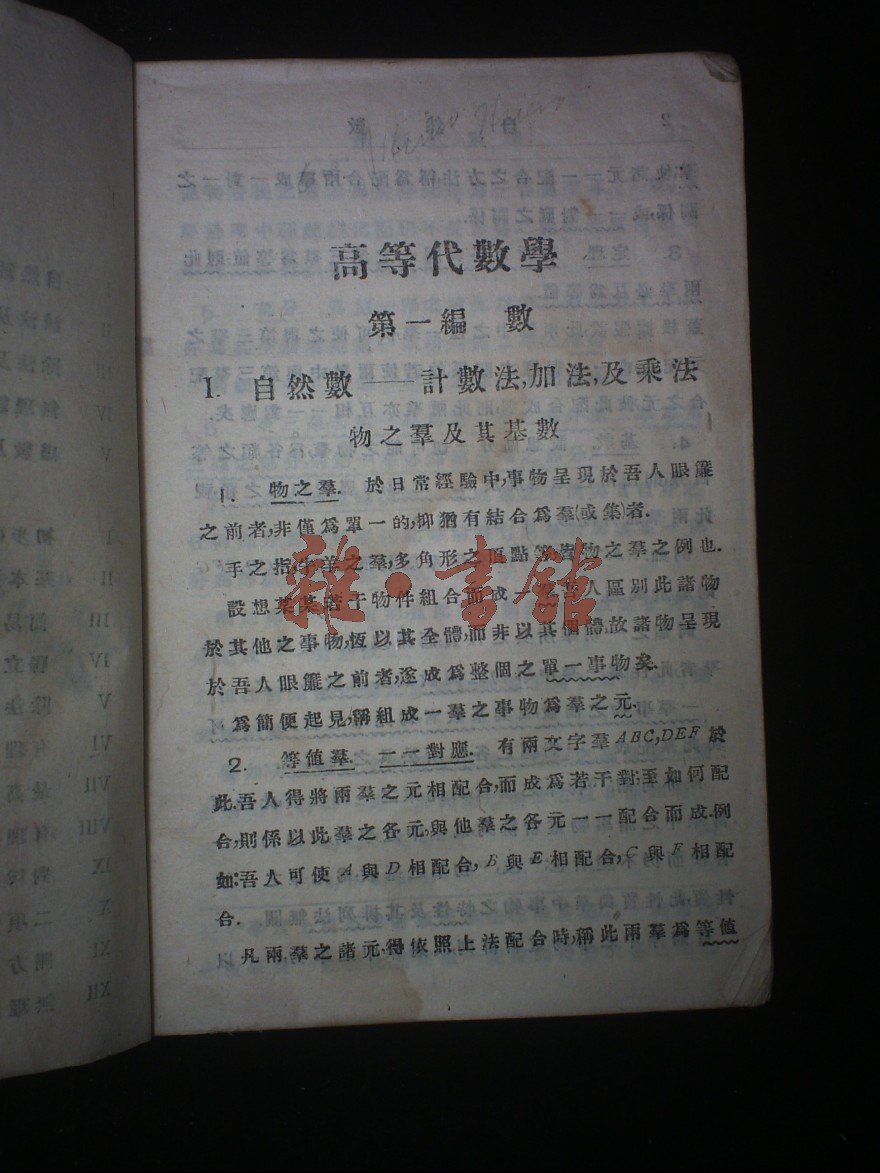 高等代數學
第一編 數
I. 自然數——計數法,加法,及乘法
物之羣及其基數
1. 物之羣. 於日常經驗中,事物呈現於吾人眼簾
之前者,非僅爲單一的,抑猶有結合爲羣(或集)者.
手之指,牛羊之羣,多角形之頂點等皆物之羣之例也.
設想某某若干物件組合而成一 吾人區別此諸物
於其他之事物,恆以其全體,而非以其個體,故諸物呈現
於吾人眼簾之前者,遂成爲整個之單一事物矣.
爲簡便起見,稱組成一羣之事物爲羣之元.
2. 等值羣. 一一對應. 有兩文字羣ABC,DEF於
此.吾人得將兩羣之元相配合,而成爲若干對;至如何配
合,則係以此羣之各元,與他羣之各元一一配合而成.例
如:吾人可使A與D相配合,B與E相配合,C與F相配
合.
凡兩羣之諸元.得依照上法配合時,稱此兩羣爲等值
雜·書館